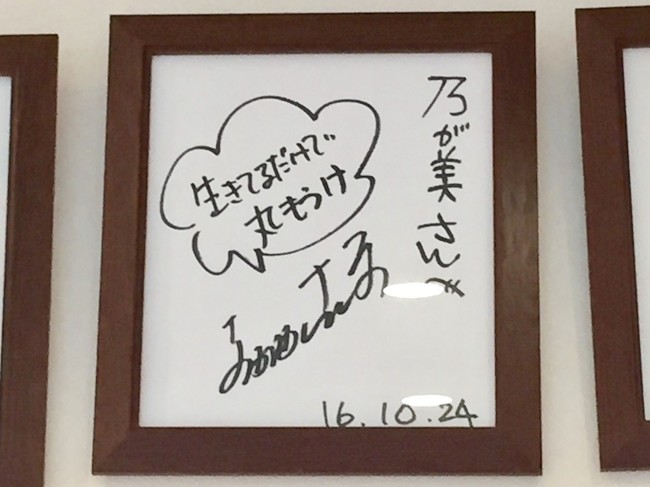 乃が美さん
生きてるだけで
丸もうけ
16.10.24